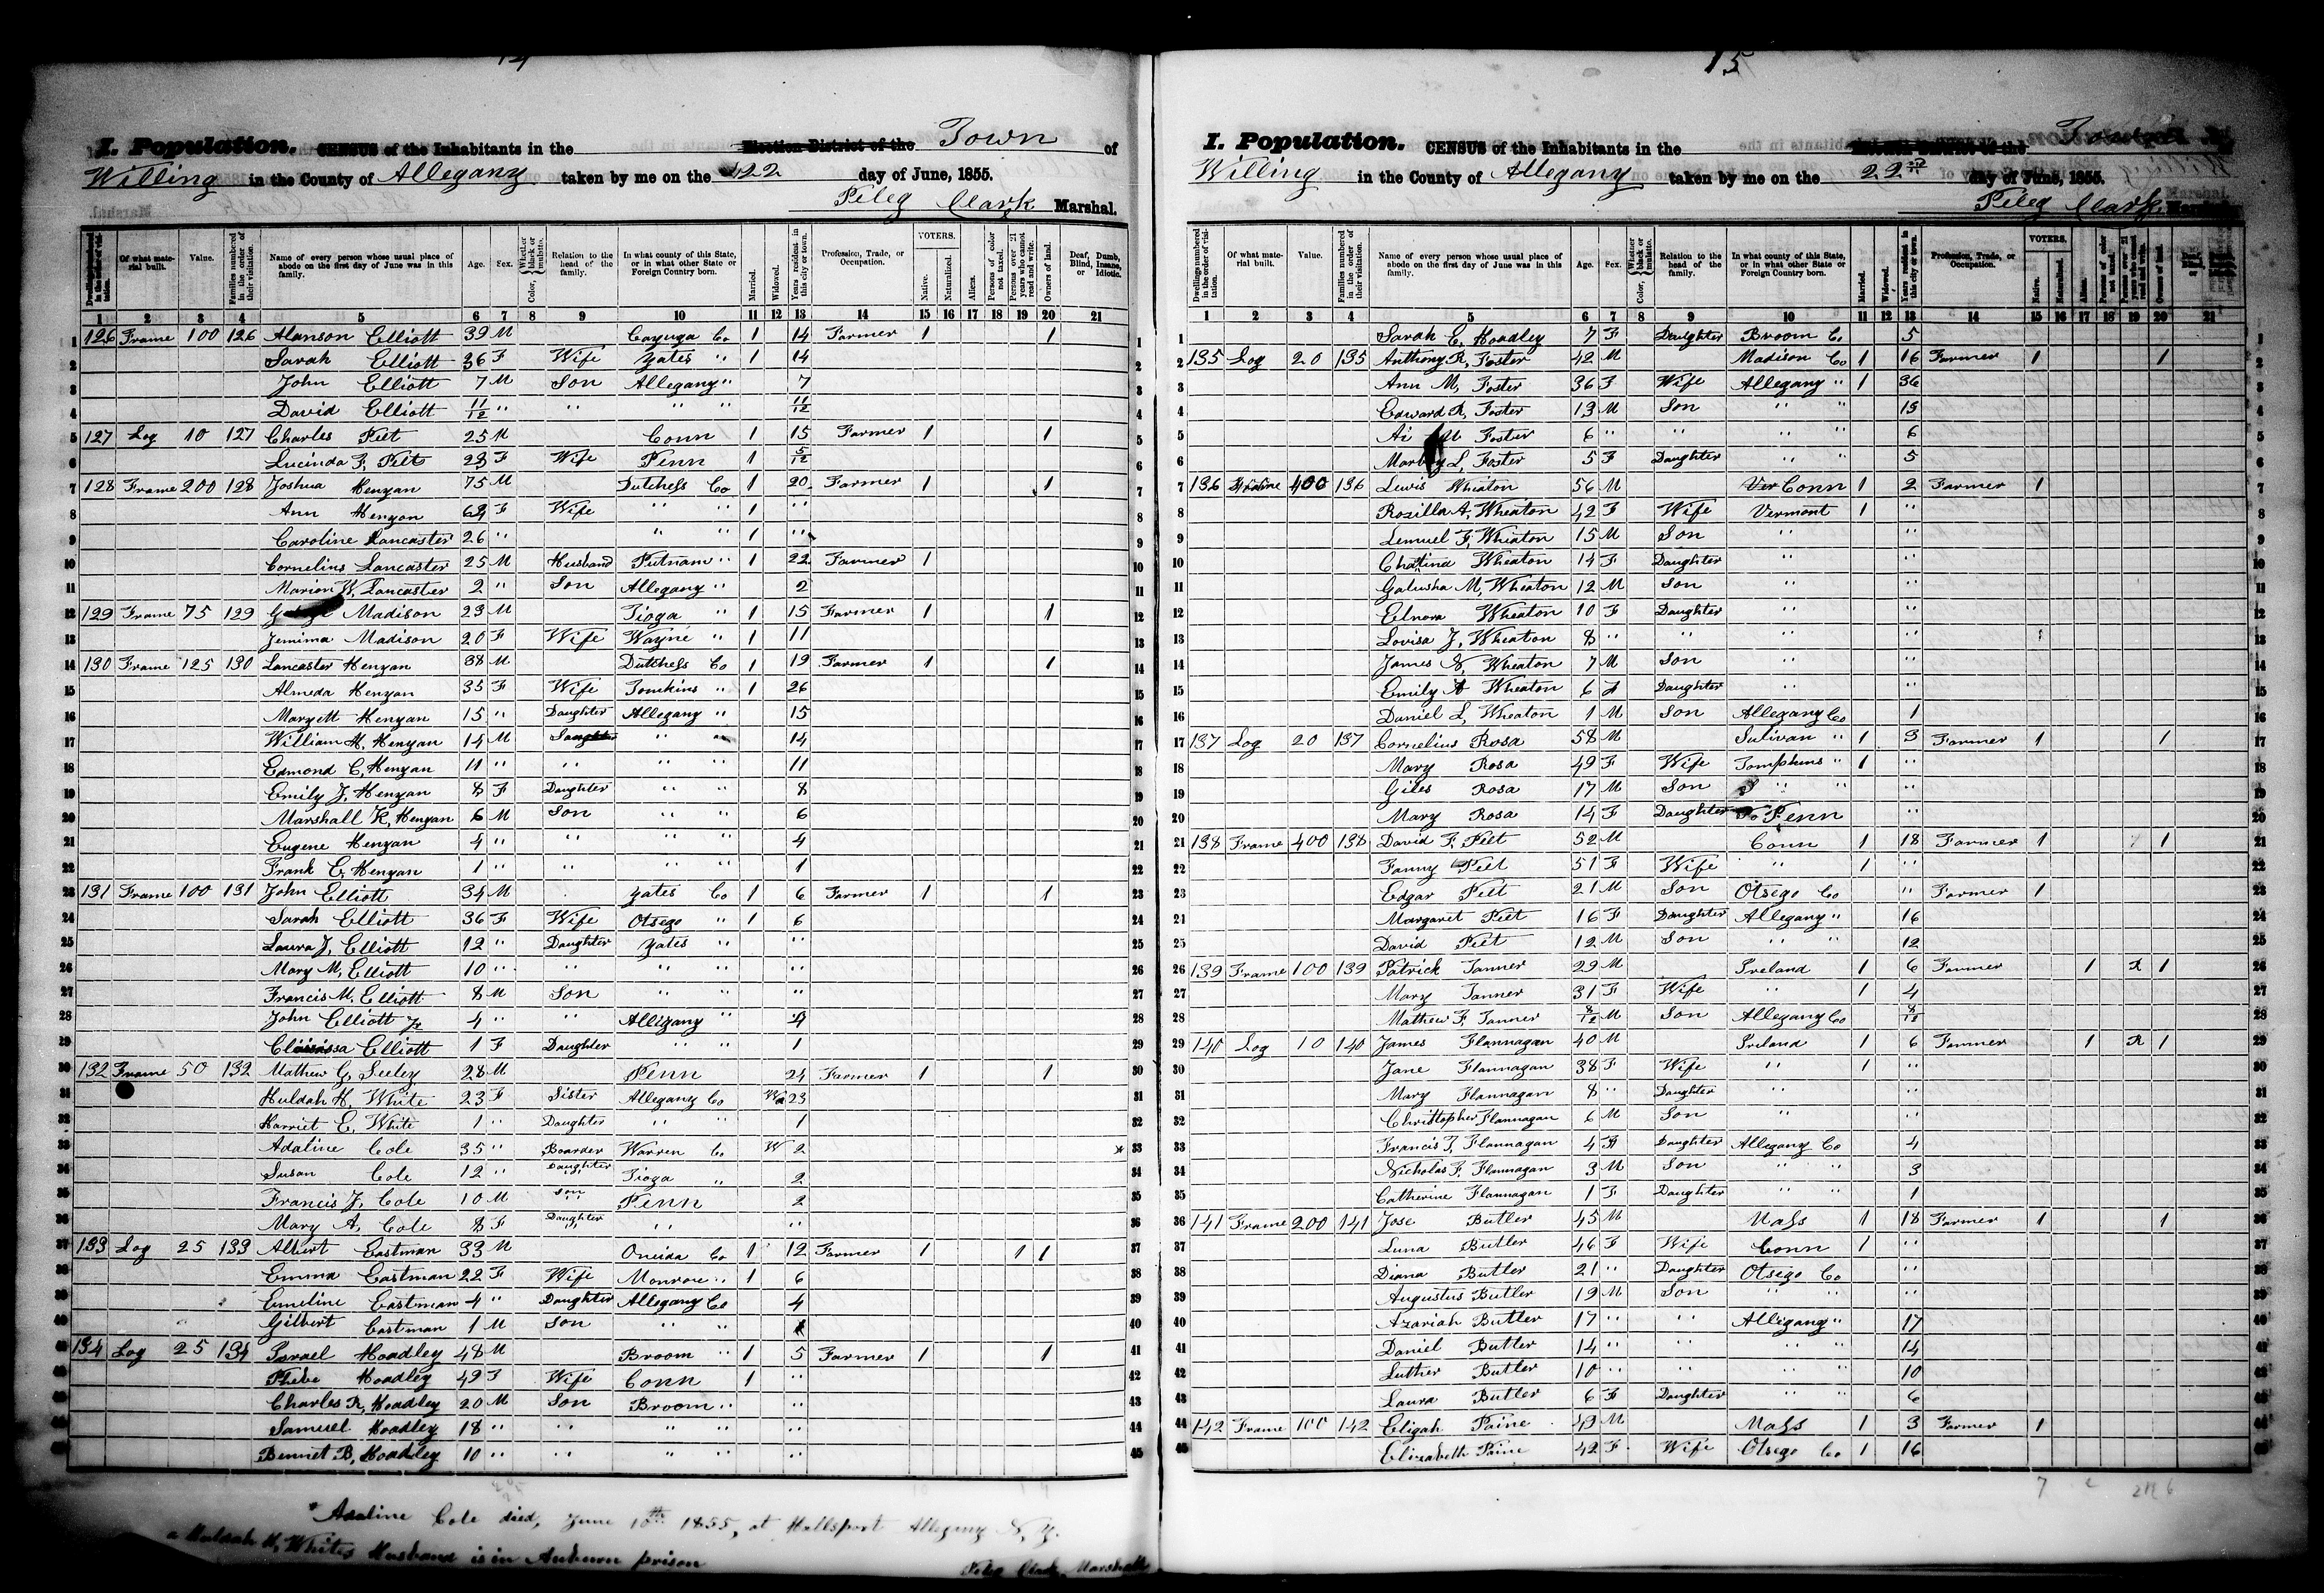 14
I. Population. CENSUS of the Inhabitants in the Election District of the Town of
Willing in the County of Allegany taken by me on the 22 day of June, 1855.
Peleg Clark Marshal.
Dwellings numbered in the order of visitation. Of what material built. Value. Families numbered in the order of their visitation. Name of every person whose usual place of abode on the first day of June was in this family. Age. Sex. Color, Whether black or mulatto. Relation to the head of the family. In what county of this State, or in what other State or Foreign Country born. Married. Widowed. Years resident in this city or town. Profession, Trade, or Occupation. VOTERS. Native. Naturalized. Aliens. Persons of color not taxed. Persons over 21 years who cannot read and write. Owners of land. Deaf, Dumb, Blind, Insane, or Idiotic.
1 2 3 4 5 6 7 8 9 10 11 12 13 14 15 16 17 18 19 20 21
1 126 Frame 100 126 Alanson Elliott 39 M Cayuga Co 1 14 Farmer 1 1 1
2 Sarah Elliott 36 F Wife Yates " 1 14 2
3 John Elliott 7 M Son Allegany " 7 3
4 David Elliott 11/12 " " " " 11/12 4
5 127 Log 10 127 Charles Peet 25 M Conn 1 15 Farmer 1 1 5
6 Lucinda F, Peet 23 F Wife Penn 1 5/12 6
7 128 Frame 200 128 Joshua Henyan 75 M Dutchess Co 1 20 Farmer 1 1 7
8 Ann Henyan 64 F Wife " " 1 " 8
9 Caroline Lancaster 26 " " " 1 " 9
10 Cornelius Lancaster 25 M Husband Putnam " 1 22 Farmer 1 10
11 Marion W, Lancaster 2 " Son Allegany " 2 11
12 129 Frame 75 129 Madison 23 M Tioga " 1 15 Farmer 1 1 12
13 Jemima Madison 20 F Wife Wayne " 1 11 13
14 130 Frame 125 130 Lancaster Henyan 38 M Dutchess Co 1 19 Farmer 1 1 14
15 Almeda Henyan 35 F Wife Tomkins " 1 26 15
16 Mary M Henyan 15 " Daughter Allegany " 15 16
17 William H, Henyan 14 M " " 14 17
18 Edmond C, Henyan 11 " " " " 11 18
19 Emily J, Henyan 8 F Daughter " " 8 19
20 Marshall K, Henyan 6 M Son " " 6 20
21 Eugene Henyan 4 " " " " 4 21
22 Frank C, Henyan 1 " " " " 1 22
23 131 Frame 100 131 John Elliott 34 M Yates Co 1 6 Farmer 1 1 23
24 Sarah Elliott 36 F Wife Otsego " 1 6 24
25 Laura J, Elliott 12 " Daughter Yates " " 25
26 Mary M, Elliott 10 " " " " " 26
27 Francis M, Elliott 8 M Son " " " 27
28 John Elliott Jr 4 " " Allegany " 4 28
29 Elliott 1 F Daughter " " 1 29
30 132 Frame 50 132 Mathew G, Seeley 28 M Penn 24 Farmer 1 1 30
31 Huldah H, White 23 F Sister Allegany Co Wa 23 31
32 Harriet E, White 1 " Daughter " " 1 32
33 Adaline Cole 35 " Boarder Warren Co W 2 * 33
34 Susan Cole 12 " Daughter Tioga " 2 34
35 Francis J, Cole 10 M Son Penn 2 35
36 Mary A, Cole 8 F Daughter " " 36
37 133 Log 25 133 Albert Eastman 33 M Oneida Co 1 12 Farmer 1 1 1 37
38 Emma Eastman 22 F Wife Monroe " 1 6 38
39 Emeline Eastman 4 " Daughter Allegany Co 4 39
40 Gilbert Eastman 1 M Son " " 1 40
41 134 Log 25 134 Israel Hoadley 48 M Broom " 1 5 Farmer 1 1 41
42 Phebe Hoadley 49 F Wife Conn 1 " 42
43 Charles R, Hoadley 20 M Son Broom " " 43
44 Samuel Hoadley 18 " " " " " 44
45 Bennet B, Hoadley 10 " " " " " 45
* Adaline Cole died, June 10th 1855, at Hallsport Allegany N, Y.
a Huldah H, Whites Husband is in Auburn prison
Peleg Clark, Marshall
15
I. Population. CENSUS of the Inhabitants in the Election District of the Town
Willing in the County of Allegany taken by me on the 22nd day of June, 1855.
Peleg Clark, Marshal.
Dwellings numbered in the order of visitation. Of what material built. Value. Families numbered in the order of their visitation. Name of every person whose usual place of abode on the first day of June was in this family. Age. Sex. Color, Whether black or mulatto. Relation to the head of the family. In what county of this State, or in what other State or Foreign Country born. Married. Widowed. Years resident in this city or town. Profession, Trade, or Occupation. VOTERS. Native. Naturalized. Aliens. Persons of color not taxed. Persons over 21 years who cannot read and write. Owners of land.
1 2 3 4 5 6 7 8 9 10 11 12 13 14 15 16 17 18 19 20 21
1 Sarah E, Hoadley 7 F Daughter Broom Co 5 1
2 135 Log 20 135 Anthony R, Foster 42 M Madison Co 1 16 Farmer 1 1 2
3 Ann M, Foster 36 F Wife Allegany " 1 36 3
4 Edward R, Foster 13 M Son " " 13 4
5 Ai M Foster 6 " " " " 6 5
6 L, Foster 5 F Daughter " " 5 6
7 136 Frame 400 136 Lewis Wheaton 56 M Ver Conn 1 2 Farmer 1 7
8 Rozilla A, Wheaton 42 F Wife Vermont 1 " 8
9 Lemuel F, Wheaton 15 M Son " " 9
10 Wheaton 14 F Daughter " " 10
11 Galusha M, Wheaton 12 M Son " " 11
12 Elnora Wheaton 10 F Daughter " " 12
13 Lovisa J, Wheaton 8 " " " " 13
14 James Wheaton 7 M Son " " 14
15 Emily A Wheaton 6 F Daughter " " 15
16 Daniel L, Wheaton 1 M Son Allegany Co 1 16
17 137 Log 20 137 Cornelius Rosa 58 M Sulivan " 1 3 Farmer 1 1 17
18 Mary Rosa 49 F Wife Tompkins " 1 " 18
19 Giles Rosa 17 M Son " " " 19
20 Mary Rosa 14 F Daughter Penn " 20
21 138 Frame 400 138 David F, Peet 52 M Conn 1 18 Farmer 1 1 21
22 Fanny Peet 51 F Wife " 1 " 22
23 Edgar Peet 21 M Son Otsego Co " Farmer 1 23
21 Margaret Peet 16 F Daughter Allegany " 16 24
25 David Peet 12 M Son " " 12 25
26 139 Frame 100 139 Patrick Tanner 29 M Ireland 1 6 Farmer 1 R 1 26
27 Mary Tanner 31 F Wife " 1 4 27
28 Mathew F, Tanner 8/12 M Son Allegany Co 8/12 28
29 140 Log 10 140 James Flannagan 40 M Ireland 1 6 Farmer 1 R 1 29
30 Jane Flannagan 38 F Wife " 1 " 30
31 Mary Flannagan 8 " Daughter " " 31
32 Christopher Flannagan 6 M Son " " 32
33 Francis T, Flannagan 4 F Daughter Allegany Co 4 33
34 Nicholas F, Flannagan 3 M Son " " 3 34
35 Catherine Flannagan 1 F Daughter " " 1 35
36 141 Frame 200 141 Jose Butler 45 M Mass 1 18 Farmer 1 1 36
37 Luna Butler 46 F Wife Conn 1 " 37
38 Diana Butler 21 " Daughter Otsego Co " 38
39 Augustus Butler 19 M Son " " " 39
40 Azariah Butler 17 " " Allegany " 17 40
41 Daniel Butler 14 " " " " 14 41
42 Luther Butler 10 " " " " 10 42
43 Laura Butler 6 F Daughter " " 6 43
44 142 Frame 100 142 Elijah Paine 49 M Mass 1 3 Farmer 1 44
45 Elizabeth Paine 42 F Wife Otsego Co 1 16 45